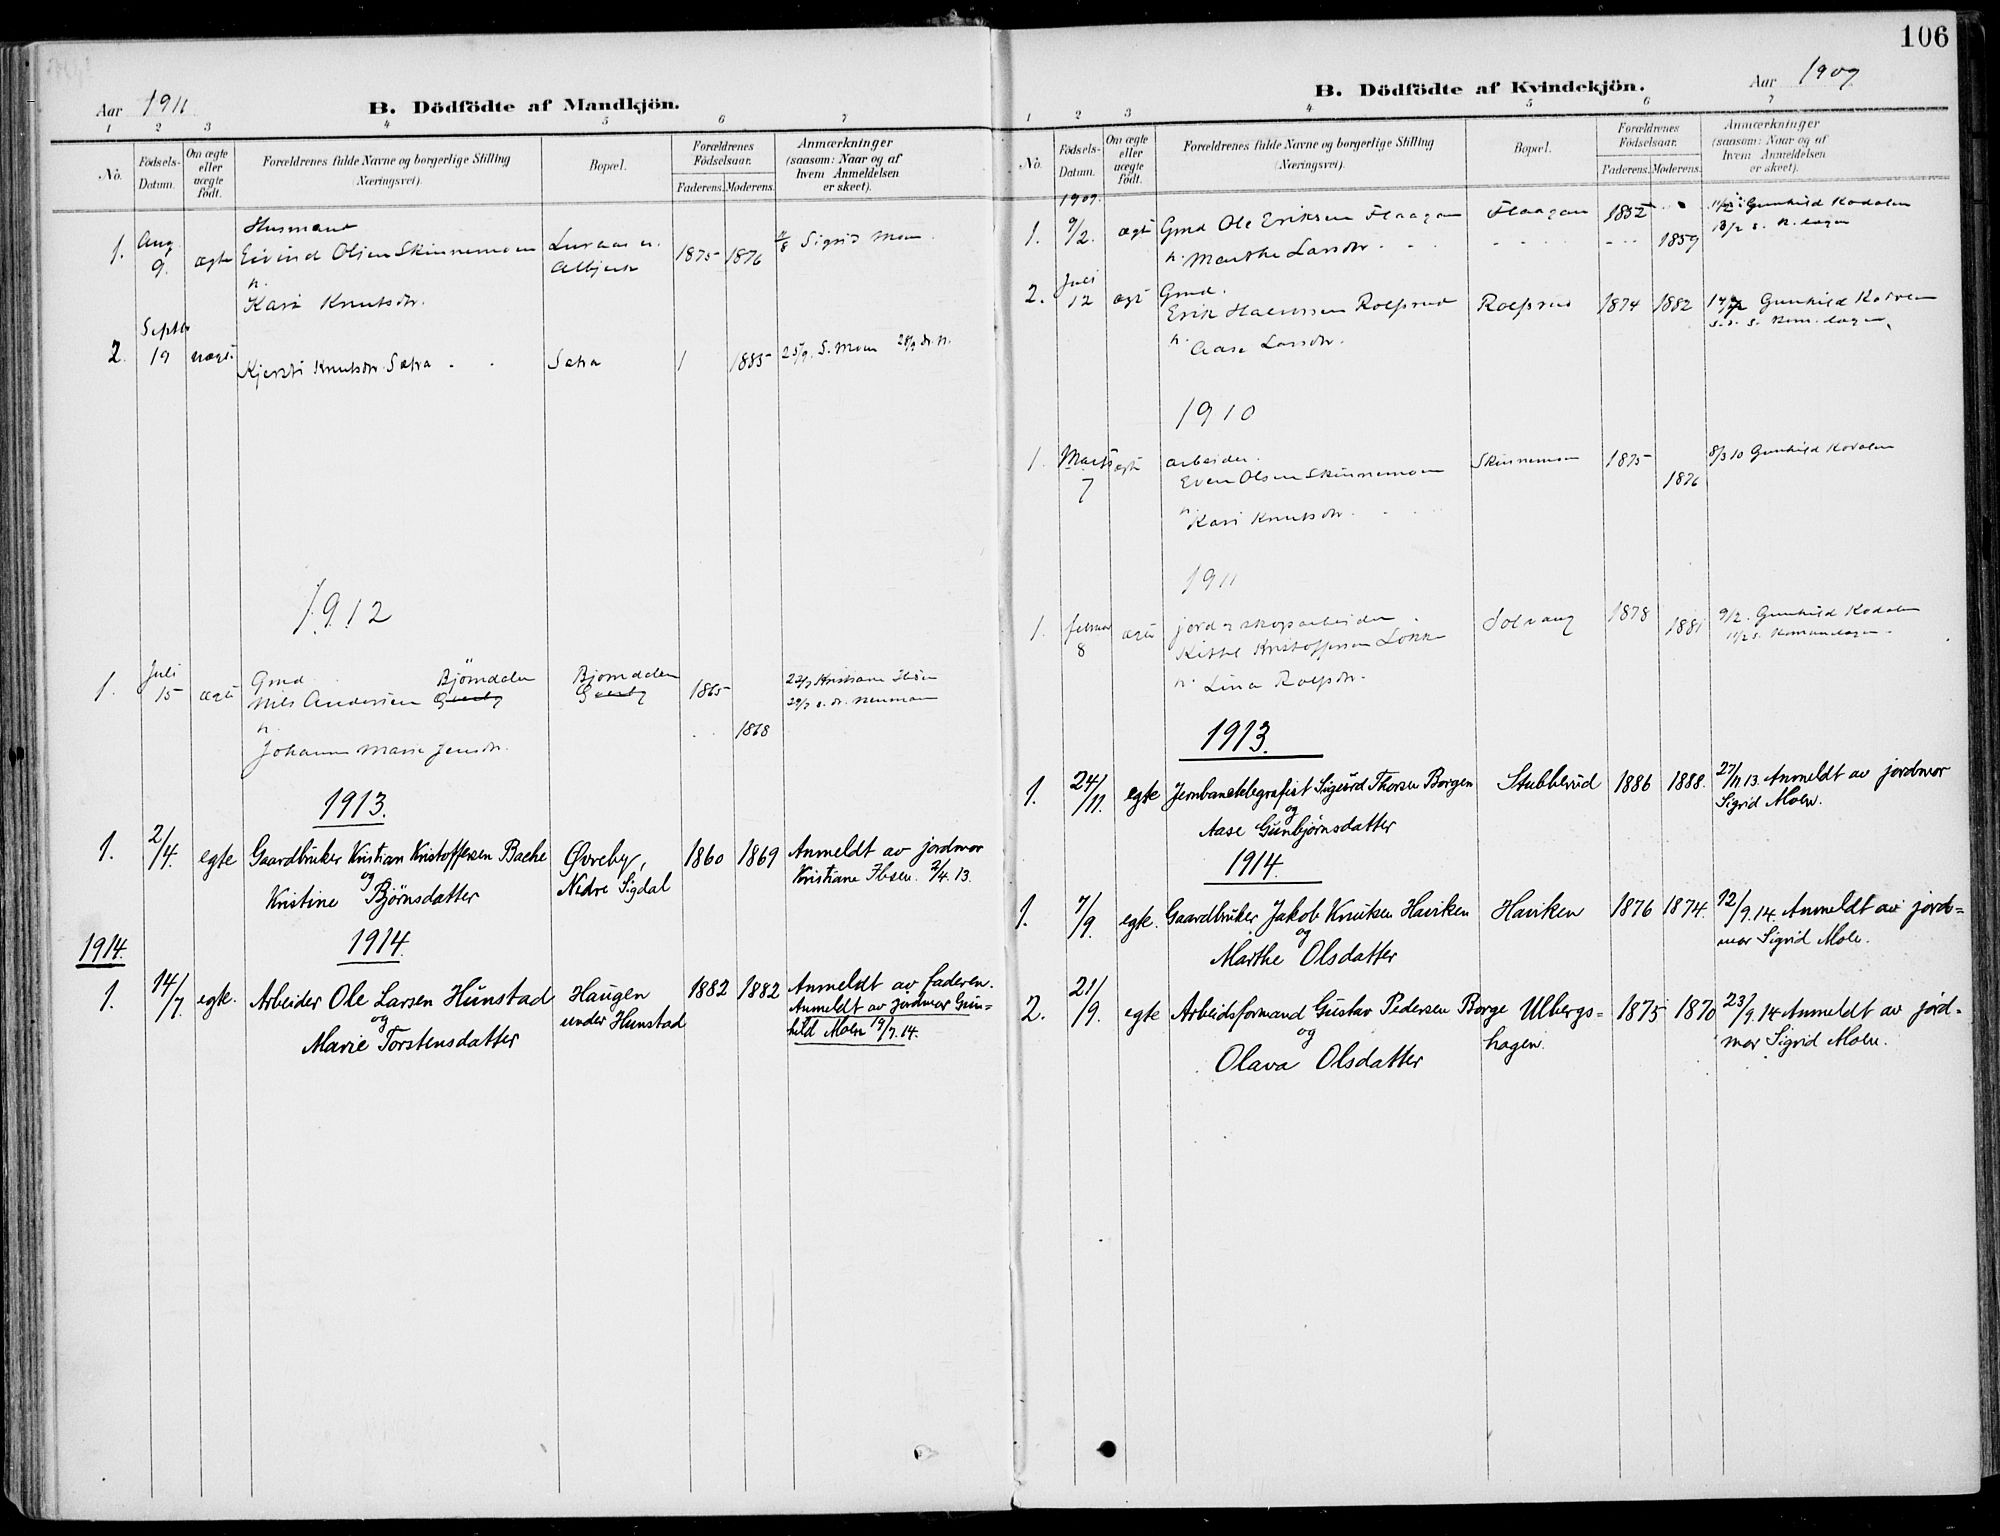 106
Aar 1911
B. Dödfödte af Mandkjön.
1 2 3 4 5 6 7
No.
Födsels-Datum.
Om ægte eller uægte födt.
Forældrenes fulde Navne og borgerlige Stilling (Næringsvei).
Bopæl.
Forældrenes Födselsaar.
Faderens. Moderens.
Anmærkninger
(saasom: Naar og af
hvem Anmeldelsen
er skeet).
Husmand
1. Aug. 9. ægte Eivind Olsen Skinnemoen 1875 1876 Sigrid Moen
Kari Knutsdr.
2. Septbr 19 uægte Kjersti Knutsdr. Satra Satra / 1885 25/9. S. Moen
1912
1. Juli 15 ægte Gmd. Björndalen Bjorndalen
Nils Andersen 1865 22/7 Kristiane Ibsen
1868
Johanne Marie Jensdr.
1913.
1. 2/4. egte Gaardbruker Kristian Kristoffersen Bache Øvreby, 1860 1869 Anmeldt av jordmor
og Nedre Sigdal Kristiane Ibsen. 2/4. 13.
Kristine Björnsdatter
1914. 1914.
1. 14/7. egte. Arbeider Ole Larsen Hunstad Haugen 1882 1882 Anmeldt av faderen.
og under Hunstad Anmeldt av jordmor Gun-
Marie Torstensdatter hild Moen 19/7. 14.
B. Dödfödte af Kvindekjön.
Aar 1909
1 2 3 4 5 6 7
No.
Födsels-Datum.
Om ægte eller uægte födt.
Forældrenes fulde Navne og borgerlige Stilling (Næringsvei).
Bopæl.
Forældrenes Födselsaar.
Faderens. Moderens.
Anmærkninger
(saasom: Naar og af
hvem Anmeldelsen
er skeet).
1909.
1. 9/2. ægt Gmd Ole Eriksen Flaagan Flaagan 1852 Gunhild Kodalen
Marthe Larsdr. 1859
2. Juli 12 ægt Gmd.
Erik Rolfsrud Roefsrud 1874 1882 Gunhild
Aase Larsdr.
1910
1. Marts 7 ægte arbeider.
Even Olsen Skinnemoen Skinnemoen 1875 1876 8/3 10 Gunhild Kodalen
Kari Knutsdr.
1911
1. februar 8 ægte jord og skogarbeider
Kittel Kristoffersen Solvang 1878 1881 9/2. Gunhild Kodalen
Lina Roefsdr.
1913.
1. 24/11. egte Jernbanetelegrafist Sigurd Thorsen Borgen Stubberud 1886 1888. 27/11. 13. Anmeldt av jordmor
og Sigrid Moen.
Aase Gunbjørnsdatter
1914.
1. 7/9. egte. Gaardbruker Jakob Knutsen Haviken Haviken 1876 1874. 12/9. 14. Anmeldt av jord=
og mor Sigrid Moen.
Marthe Olsdatter
2. 21/9. egte Arbeidsformand Gustav Pedersen Borge Ulbergs= 1875 1870 23/9. 14 Anmeldt av jord=
og hagen. mor Sigrid Moen.
Olava Olsdatter